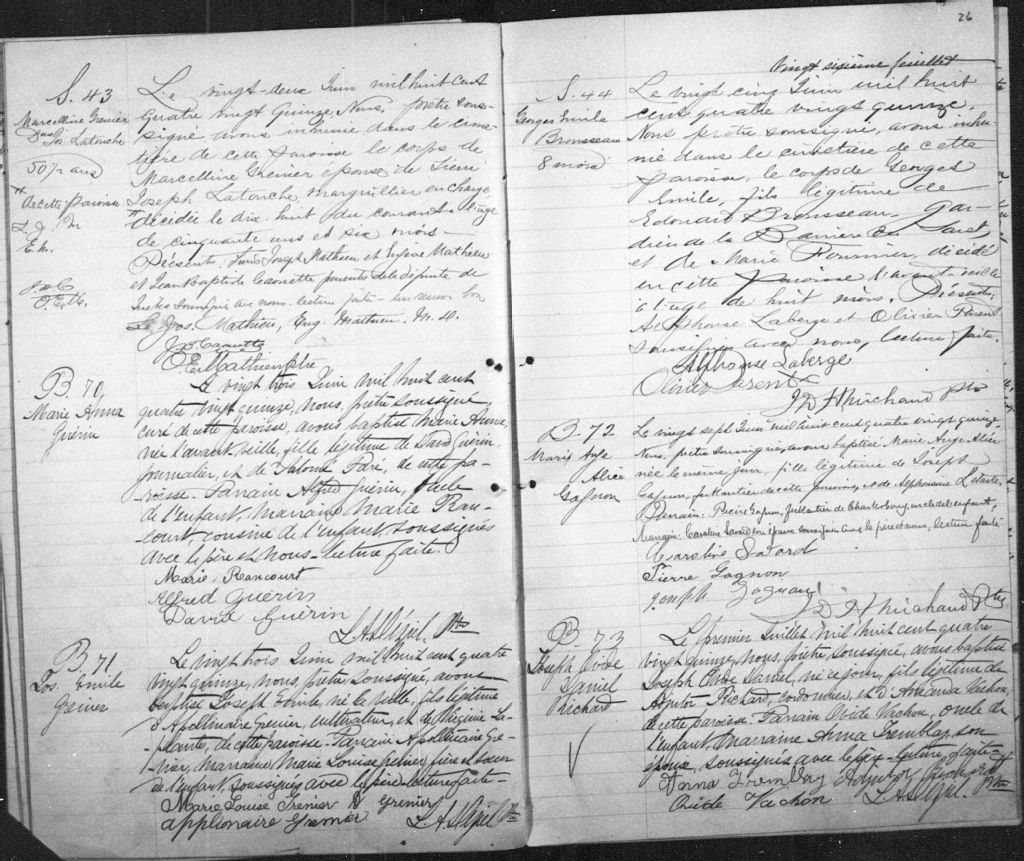 S. 43
Marcelline Grenier
Dame Jos. Latouche
50½ ans
# de cette paroisse
J. M
E. M.
J. B. C
O. E. M.
Le vingt-deux Juin mil huit cent
quatre vingt quinze, Nous, prêtre sous-
signé avons inhumé dans le cime-
tière de cette paroisse le corps de
Marcelline Grenier épouse de Sieur
Joseph Latouche, marguillier en charge
# décédée le dix huit du courant à l'age
de cinquante ans et six mois.
Présents: Joseph Mathieu et Eugène Mathieu
et Jean Baptiste Caouette parents de la défunte
soussignés avec nous. lecture faite.
Jos. Mathieu, Eug. Mathieu. M. D.
J. B. Caouette
O. E. Mathieu ptre
B. 70
Marie Anna
Guérin
Le vingt trois Juin mil huit cent
quatre vingt quinze, nous, prêtre soussigné
curé de cette paroisse, avons baptisé Marie Anna,
née l'avant-veille, fille légitime de David Guérin
journalier, et de Salomé Paré, de cette pa-
roisse. Parrain Alfred Guérin,
de l'enfant, Marraine Marie Ran-
court, cousine de l'enfant, soussignés
avec le père et nous. Lecture faite.
Marie Rancourt
Alfred Guérin
David Guérin
Ptre
B. 71
Jos. Emile
Grenier
Le vingt trois Juin mil huit cent quatre
vingt quinze, nous, prêtre soussigné, avons
baptisé Joseph Emile, né la veille, fils légitime
d'Apollinaire Grenier, cultivateur, et de Virginie La-
plante, de cette paroisse. Parrain Apollinaire Gre-
nier, Marraine Marie Louise Grenier, frère et soeur
de l'enfant, soussignés avec le père. Lecture faite.
Marie Louise Grenier A Grenier
applionaire Grenier
Ptre
26
Vingt sixième feuillet
S. 44
Georges Emile
Brousseau
8 mois
Le vingt cinq Juin mil huit
cent quatre vingt quinze,
Nous prêtre soussigné, avons inhu-
mé dans le cimetière de cette
paroisse, le corps de Georges
Emile, fils légitime de
Edouard Brousseau, gar-
dien de la Barrière
et de Marie Fournier, décédé
en cette paroisse l'avant-veille
à l'age de huit mois. Présents:
Alphonse Laberge et Olivier Parent
soussignés avec nous, lecture faite.
Alphonse Laberge
Olivier Parent
J D H Michaud ptre
B. 72
Marie Ange
Alice
Gagnon
Le vingt sept Juin mil huit cent quatre vingt quinze,
Nous, prêtre soussigné, avons baptisé Marie Ange Alice
née le même jour, fille légitime de Joseph
Gagnon, ferblantier de cette paroisse, et de Alphonsine Letarte.
Parrain: Pierre Gagnon, ferblantier de Charlesbourg, oncle de l'enfant,
Marraine: Caroline Savard son épouse soussignés avec le père et nous, lecture faite
Caroline Savard
Pierre Gagnon
Joseph Gagnon
J D H Michaud Ptre
B 73
Joseph Ovide
Daniel
Richard
Le premier Juillet mil huit cent quatre
vingt quinze, nous, prêtre soussigné, avons baptisé
Joseph Ovide Daniel, né ce jour, fils légitime de
Richard, cordonnier, et d'Amanda Vachon,
de cette paroisse. Parrain Ovide Vachon, oncle de
l'enfant, Marraine Anna Tremblay, son
épouse, soussignés avec le père. Lecture faite.
Anna Tremblay Richard
Ovide Vachon Ptre